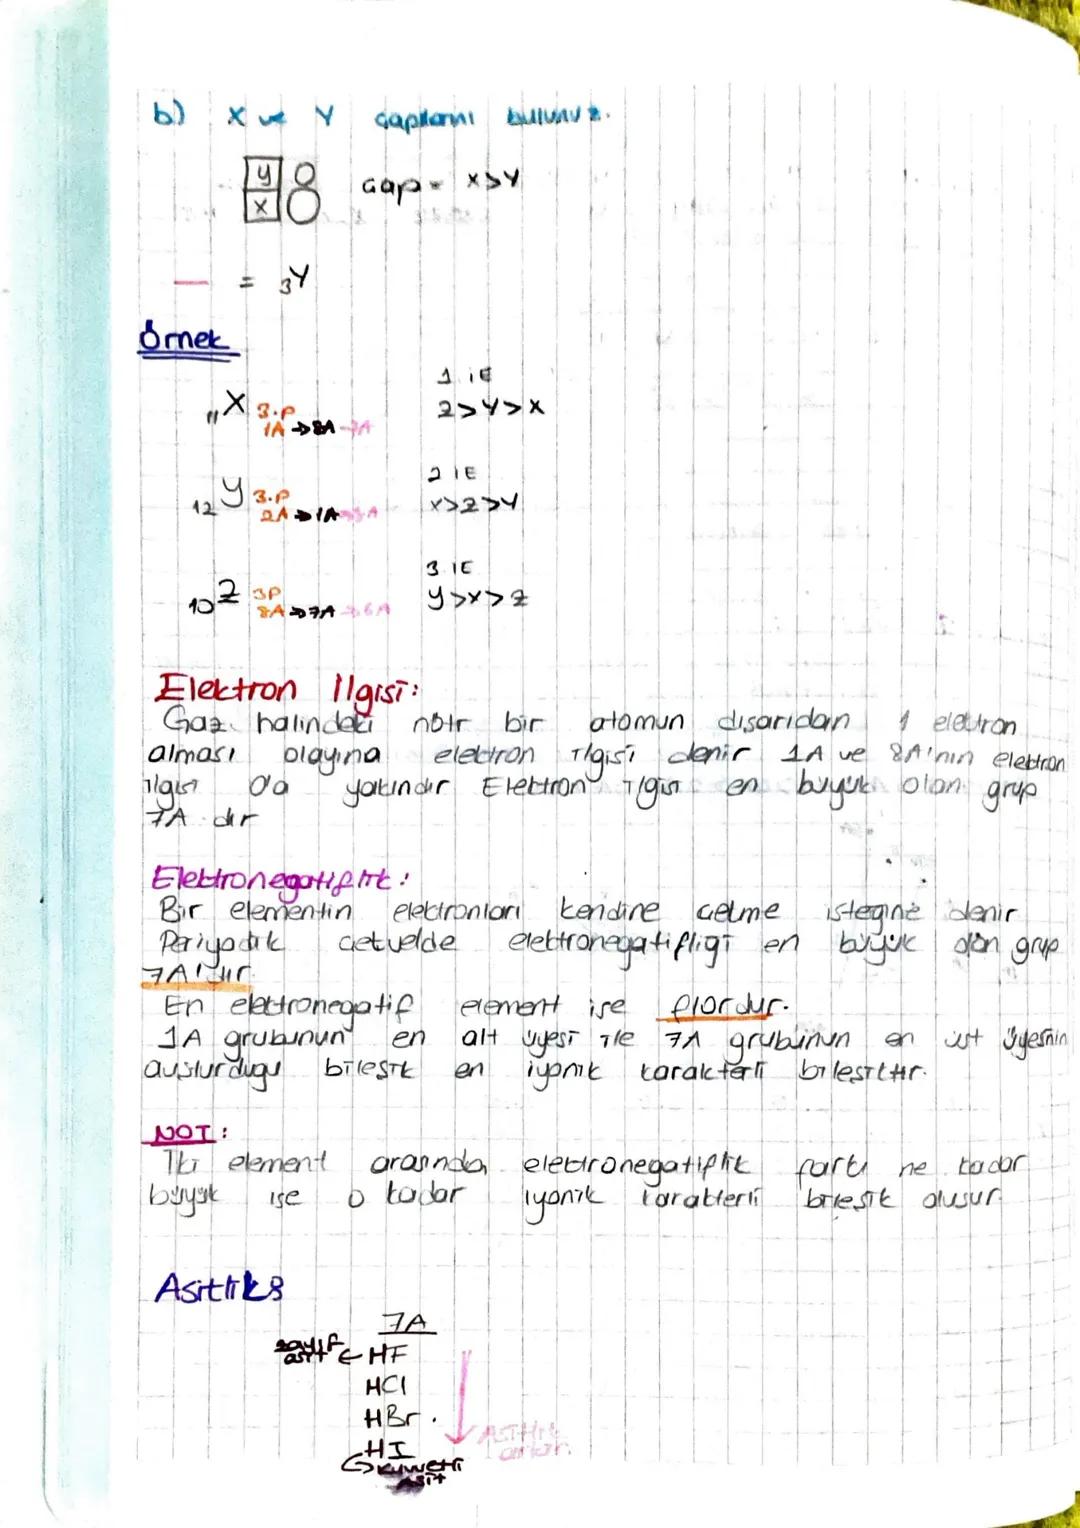 b) X ve Y çapılarını bulunuz.
Y
X
çap = X>Y
= 3Y
Örnek
11X 3.P
1A → 8A → 7A
1 İE
2>Y>X
12Y 3.P
2A → 1A → 8A
2 İE
X>2>Y
10Z 3P
8A → 7A → 6A
3 İE
Y>X>Z
Elektron İlgisi:
Gaz halindeki nötr bir atomun dışarıdan 1 elektron
alması olayına elektron ilgisi denir 1A ve 8A'nın elektron
ilgisi 0'a yakındır Elektron ilgisi en büyük olan grup
7A dır
Elektronegatiflik:
Bir elementin elektronları kendine çekme isteğine denir
Periyodik cetvelde elektronegatifliği en büyük olan grup
7A'dır.
En elektronegatif element ise flordur.
1A grubunun en alt üyesi ile 7A grubunun en üst üyesinin
oluşturduğu bileşik en iyonik karakterli bileşiktir.
NOT:
İki element arasında elektronegatiflik farkı ne kadar
büyük ise o kadar iyonik karakterli bileşik oluşur
Asitlik:
7A
zayıf
asit ← HF
HCl
HBr
HI
→ kuvvetli
Asit
Asitlik
artar